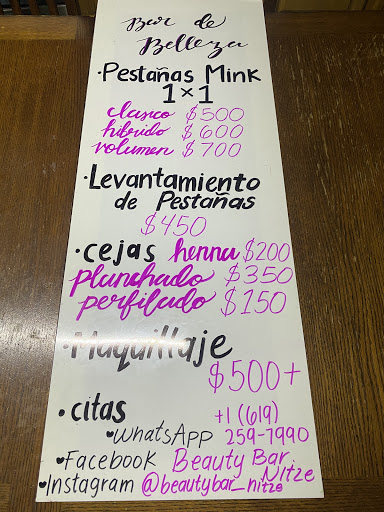 Bar de
Belleza
·Pestañas Mink
1×1
clasico $500
hibrido $600
volumen $700
·Levantamiento
de Pestañas
$450
·cejas henna $200
planchado $350
perfilado $150
·Maquillaje
$500+
·citas +1 (619)
♥WhatsApp 259-7990
♥Facebook Beauty Bar
Nitze
♥Instagram @beautybar_nitze